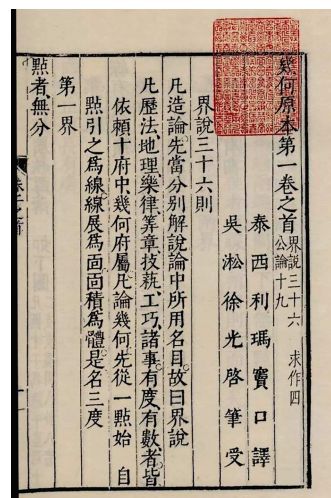 幾何原本第一卷之首 界說三十六 求作四
公論十九
泰西利瑪竇口譯
吳淞徐光啓筆受
界說三十六則
凡造論先當分别解說論中所用名目故曰界說
凡歷法地理樂律筭章技藝工巧諸事有度有數者皆
依賴十府中幾何府屬凡論幾何先從一點始 自
點引之爲線線展爲面面積爲體是名三度
第一界
點者無分